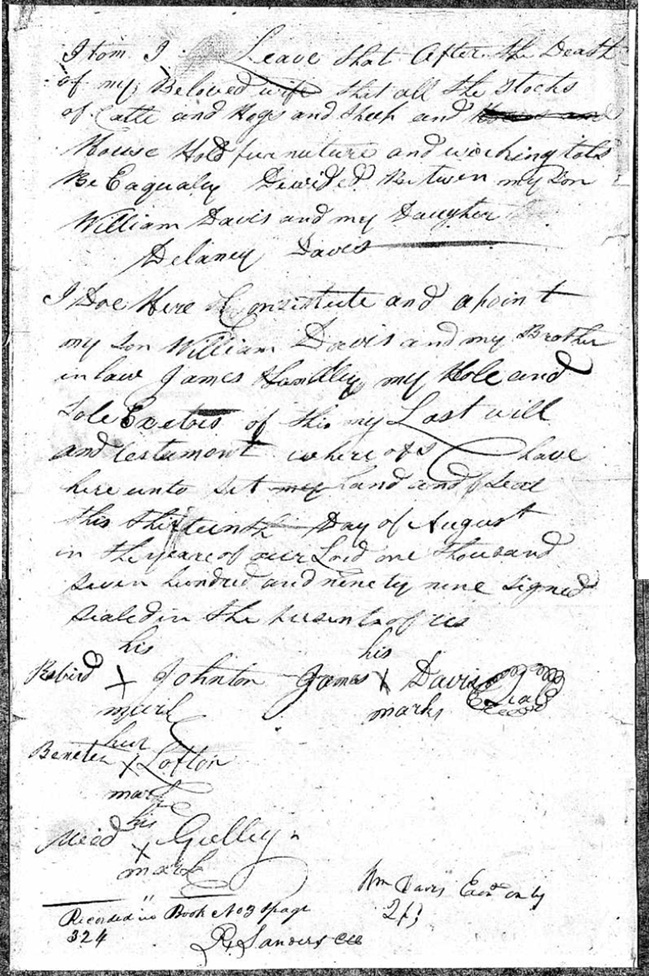 Itom I Leave that After the Death
of my Beloved wife that all the Stocks
of Catte and Hogs and Sheep and
House Hold furnuture and working tols
Be Eaqualey Devided Between my Son
William Davis and my Daughter
Delaney Daves
I Doe Here Constitute and apoint
my Son William Davis and my Brother
in law James Handley my Hole and
Sole of this my Last will
and testament where of I have
here unto Set my hand and Seal
this thirteenth Day of August
in the yeare of our Lord one thousand
seven hundred and ninety nine signed
sealed in the of us
his his
Johnton James X Davis Seal
mark marks
hur
X Lofton
mark
his
Mead X Gulley
mark
Wm Davis only
Recorded in Book No 3 page
324
Sanders